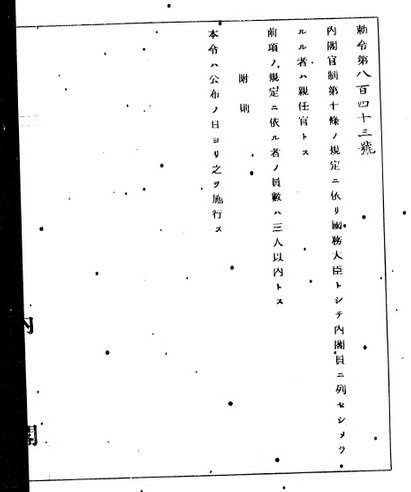 勅令第八百四十三號
内閣官制第十條ノ規定ニ依リ國務大臣トシテ内閣員ニ列セシメラ
ルル者ハ親任官トス
前項ノ規定ニ依ル者ノ員數ハ三人以内トス
附則
本令ハ公布ノ日ヨリ之ヲ施行ス
内閣